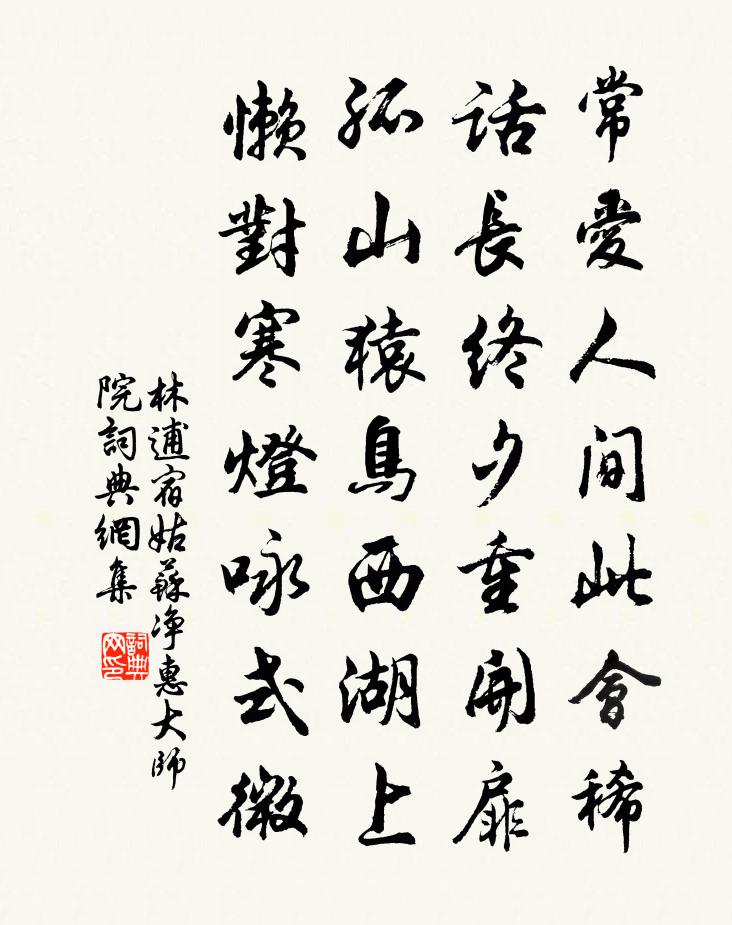 常愛人間此會稀
話長終夕重開扉
孤山猿鳥西湖上
懶對寒燈咏式微
林逋宿姑蘇净惠大師
院詞典網集
詞典网印